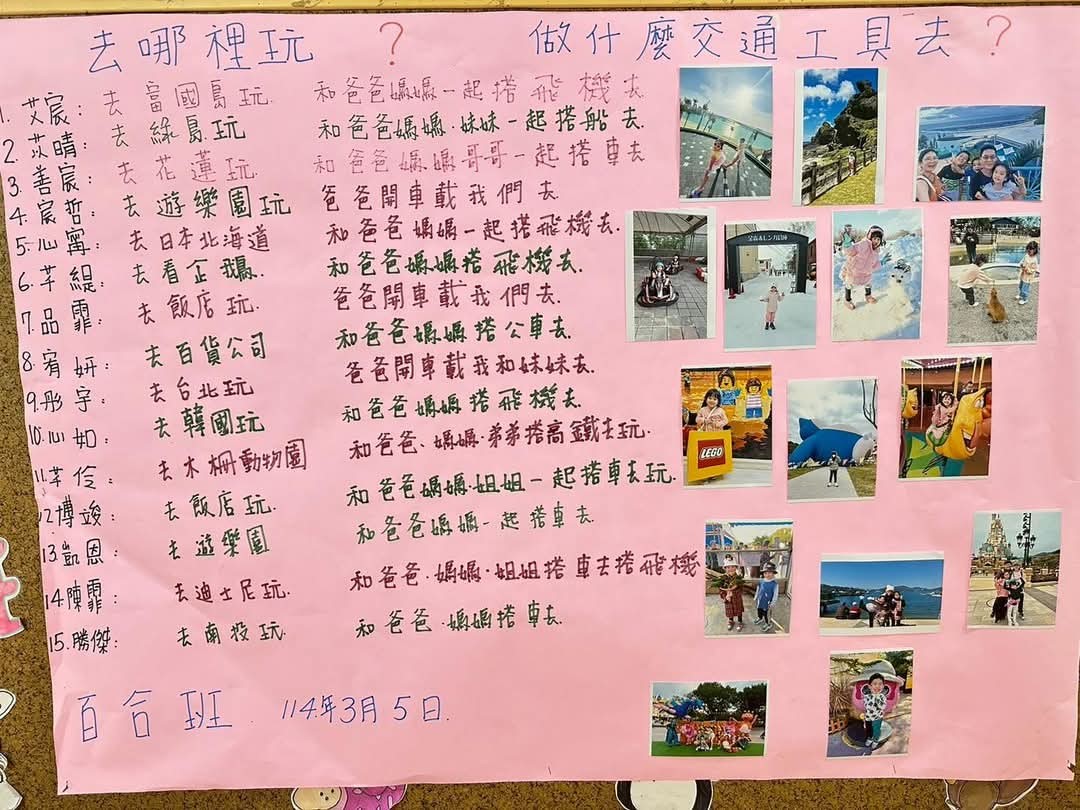 去哪裡玩？ 做什麼交通工具去？
1. 艾宸： 去富國島玩. 和爸爸媽媽一起搭飛機去
2. 苡晴： 去綠島玩 和爸爸媽媽.妹妹一起搭船去.
3. 善宸： 去花蓮玩 和爸爸媽媽哥哥一起搭車去
4. 宸哲： 去遊樂園玩 爸爸開車載我們去
5. 心甯： 去日本北海道 和爸爸媽媽一起搭飛機去.
6. 芊緹： 去看企鵝. 和爸爸媽媽搭飛機去.
7. 品霏： 去飯店玩. 爸爸開車載我們去.
8. 宥妍： 去百貨公司 和爸爸媽媽搭公車去.
9. 彤宇： 去台北玩 爸爸開車載我和妹妹去.
10. 心如： 去韓國玩 和爸爸媽媽搭飛機去.
11. 芊伶： 去木柵動物園 和爸爸、媽媽.弟弟搭高鐵去玩.
12. 博竣： 去飯店玩. 和爸爸媽媽.姐姐一起搭車去玩.
13. 凱恩： 去遊樂園 和爸爸媽媽一起搭車去.
14. 陳霏： 去迪士尼玩. 和爸爸.媽媽.姐姐搭車去搭飛機
15. 勝傑： 去南投玩. 和爸爸.媽媽搭車去.
百合班. 114年3月5日.
LEGO